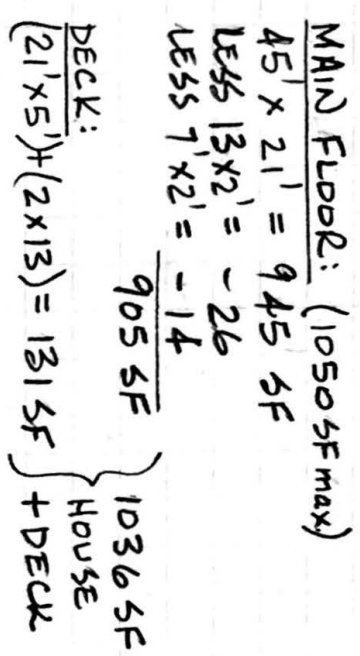 MAIN FLOOR: (1050 SF max)
45' x 21' = 945 SF
LESS 13'x2' = -26
LESS 7'x2' = -14
905 SF
DECK:
(21'x5')+(2x13) = 131 SF
1036 SF
HOUSE
+ DECK